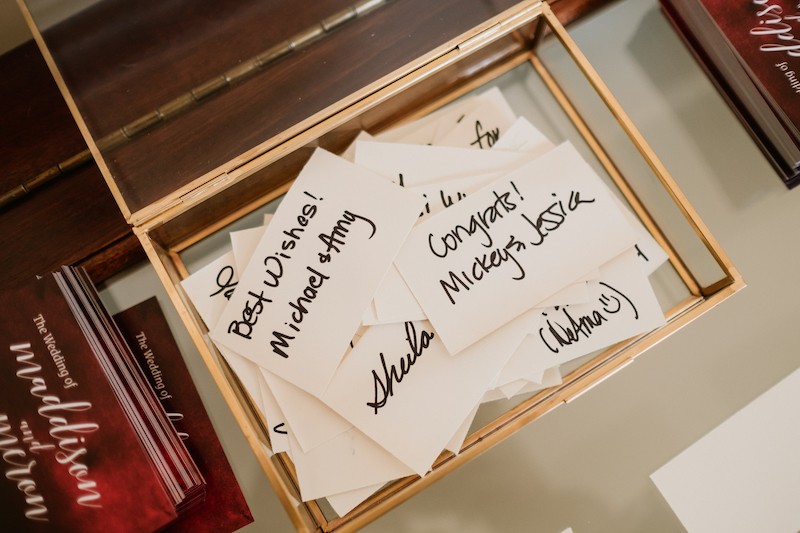 for
Best Wishes!
Michael & Amy
Congrats!
Mickey & Jessica
Sheila
The Wedding of
maddison
and
meron
The Wedding of
ddison
ding of